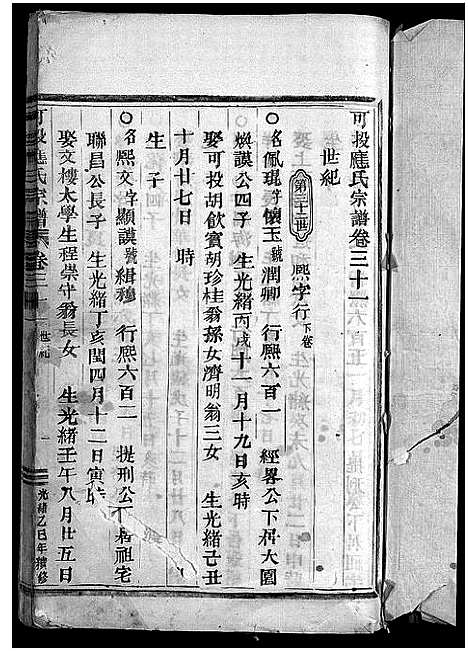 可投應氏宗譜卷三十一
世紀
第三十三世 熙字行下卷
名佩琨字懷玉號潤卿 行熙六百一 經畧公下居大園
煥謨公四子 生光緒丙戌十一月十九日亥時
娶可投胡飲賓胡珍桂翁孫女濟明翁三女 生光緒己丑
十月廿七日 時
生 子
名熙文字顯謨號緝穆 行熙六百二 提刑公下居祖宅
聯昌公長子 生光緒丁亥閏四月十二日寅時
娶文樓太學生程崇守翁長女 生光緒壬午八月廿五日
可投應氏宗譜 卷三 世紀 一 光緒乙巳年積修